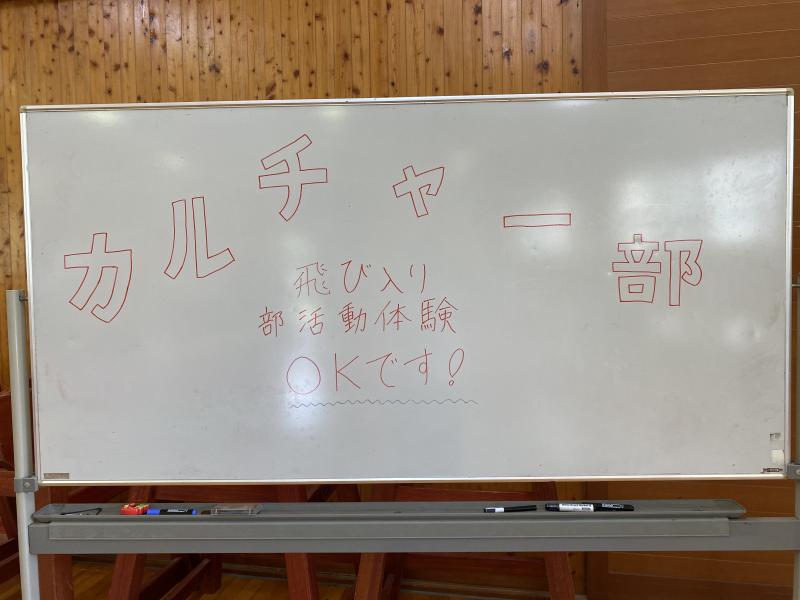 カルチャー部
飛び入り
部活動体験
OKです!